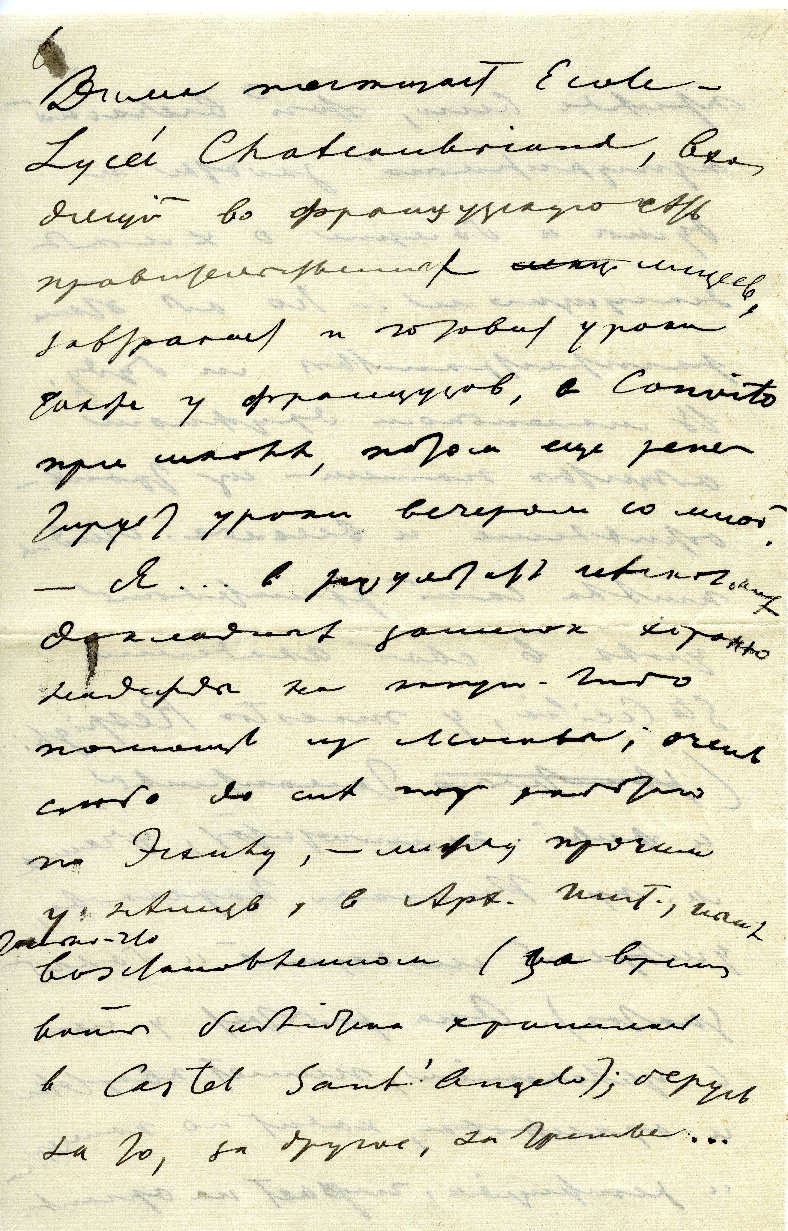 Дима посещает Ecole-
Lycée Chateaubriand, вхо
дящий во французскую сеть
правительственных лицеев,
завтракает и готовит уроки
также у французов, в Convito
при школе, потом еще репе
тирует уроки вечером со мной.
— Я... в результате
докладных записок
надежды на какую-либо
помощь из Москвы; очень
слабо до сих пор работаю
по Эсхилу, — между прочим
у немцев, в Арх. Инст.,
только-что
восстановленном (за время
войны библиотека хранилась
в Castel Sant'Angelo); берусь
за то, за другое, за третье...